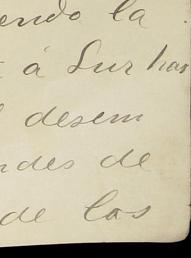 endo la
á Sur has
desem
ndes de
de los